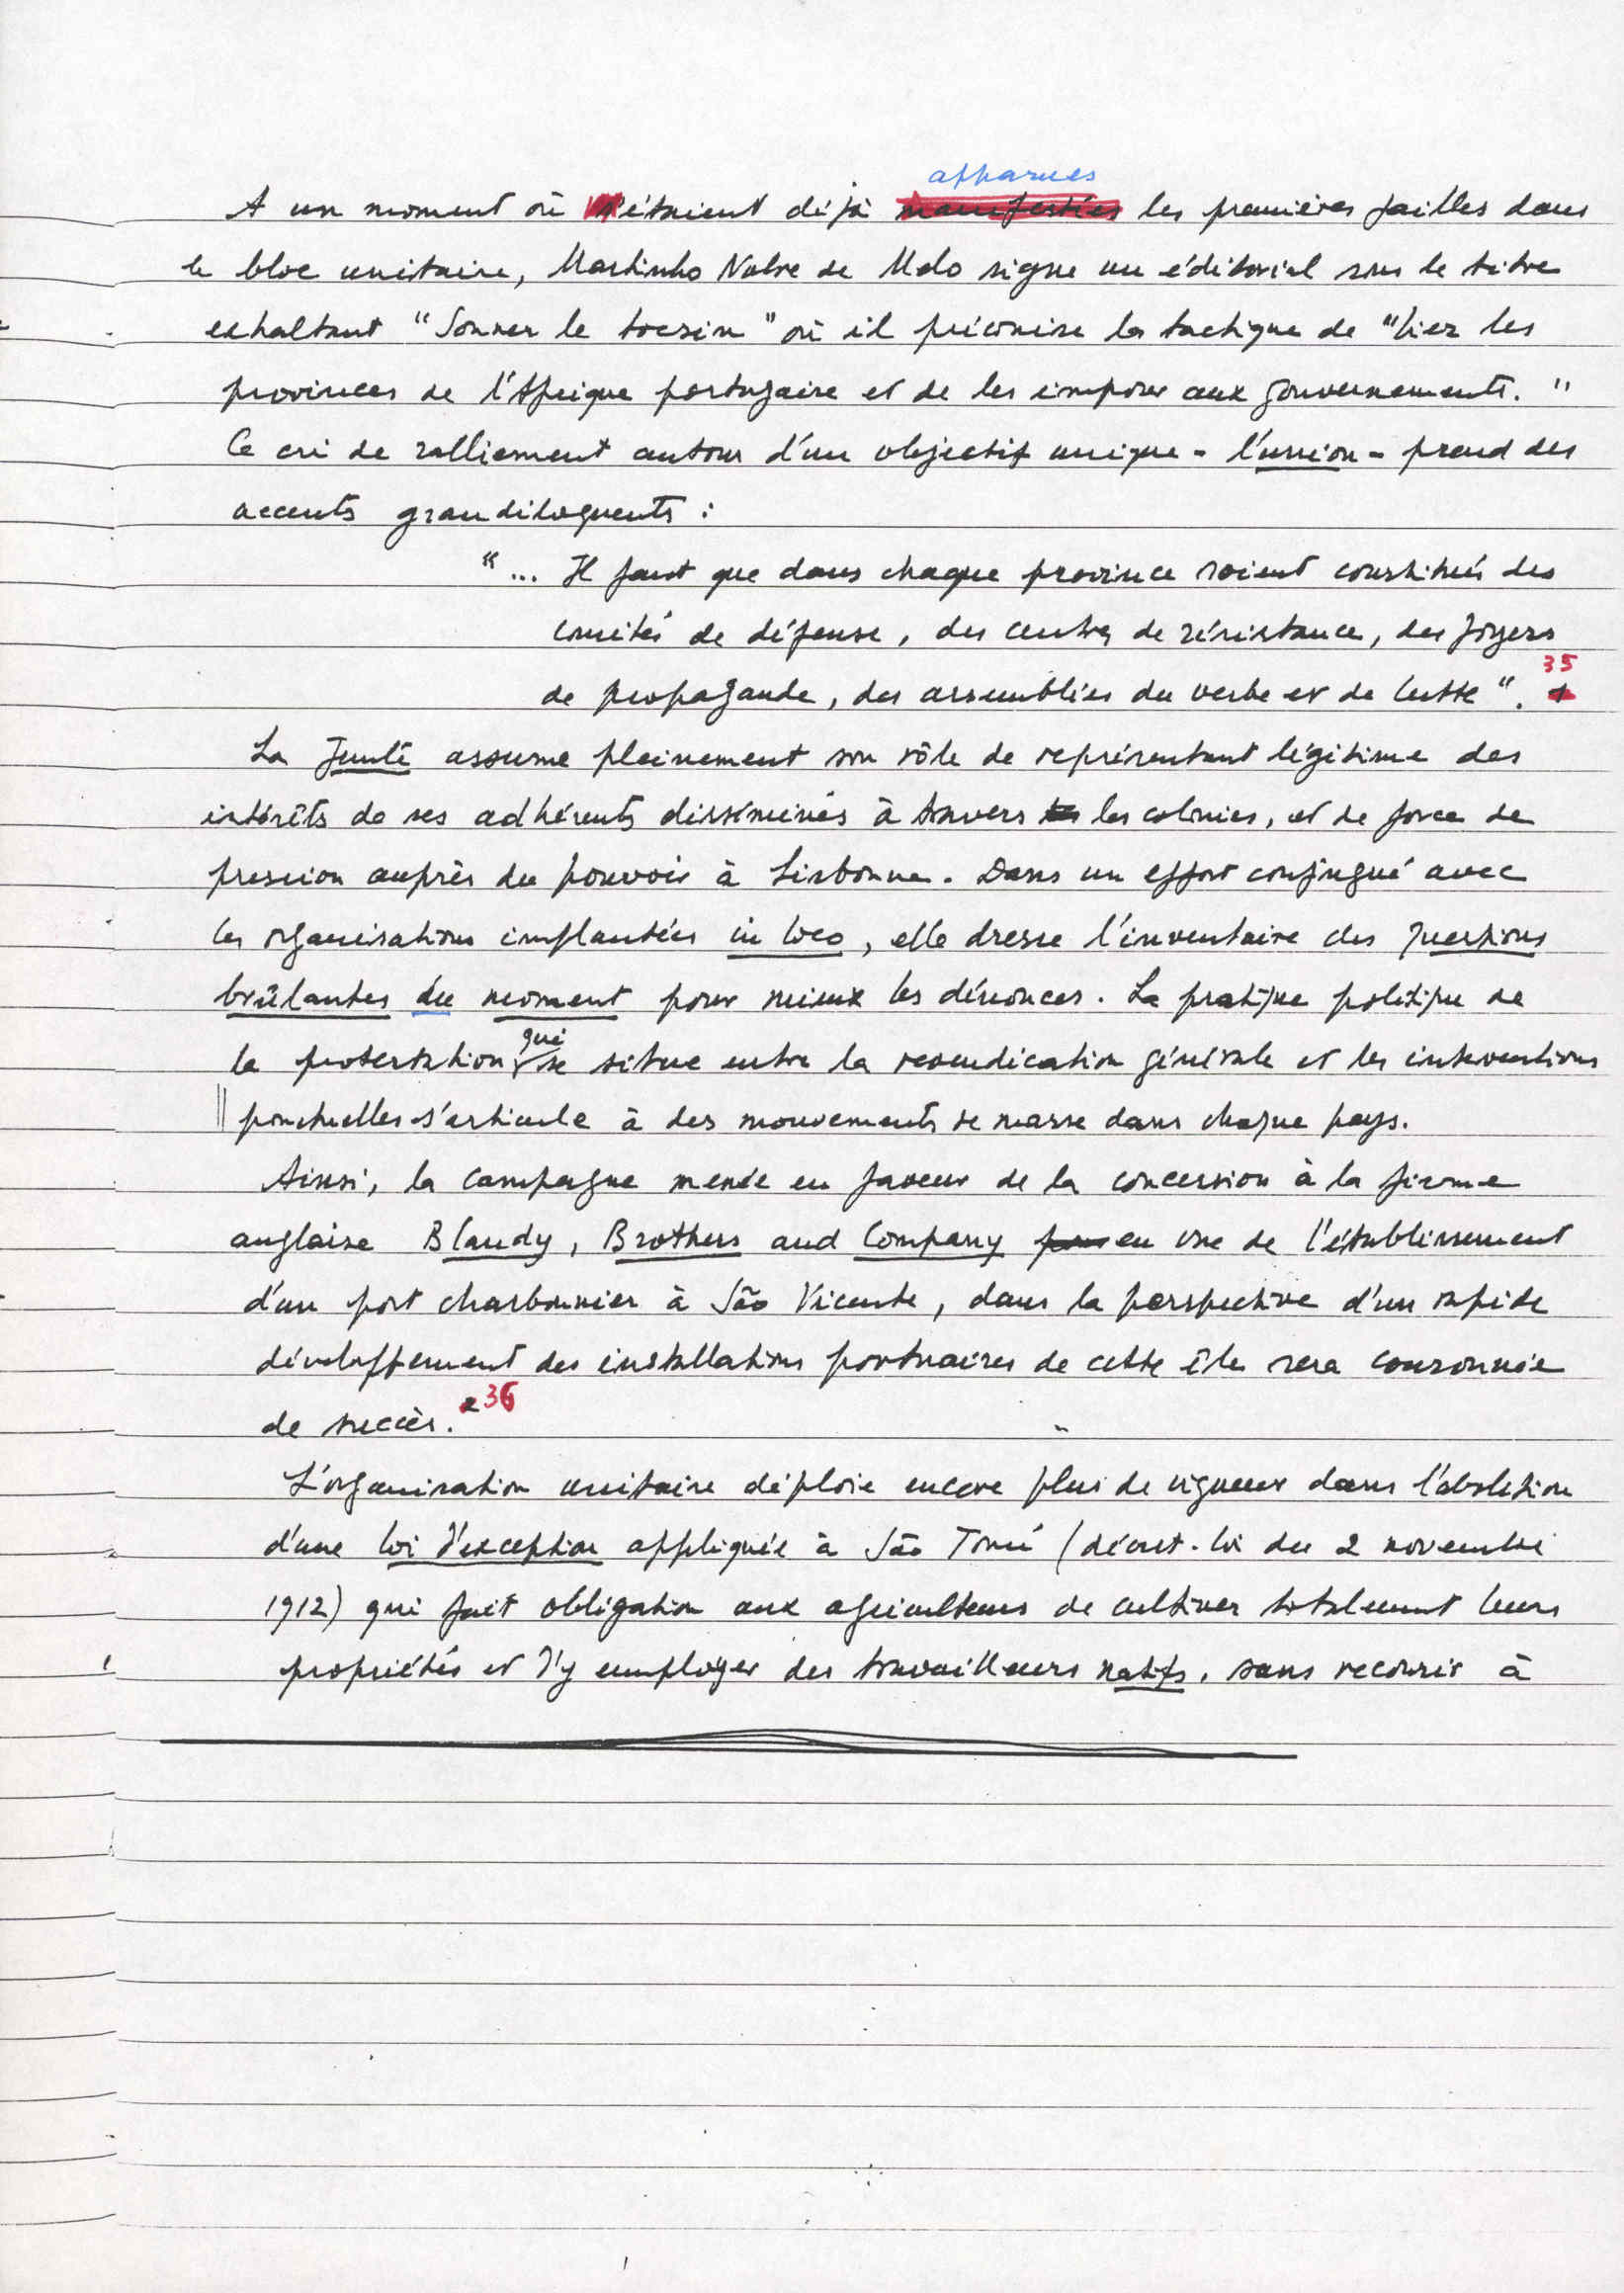 apparues
A un moment où s'étaient déjà manifestées les premières failles dans
le bloc unitaire, Martinho Nobre de Melo signe un éditorial sous le titre
exhaltant "Sonner le tocsin" où il préconise la tactique de "lier les
provinces de l'Afrique portugaise et de les imposer aux gouvernements."
Ce cri de ralliement autour d'un objectif unique - l'union - prend des
accents grandiloquents :
"... Il faut que dans chaque province soient constitués des
comités de défense, des centres de résistance, des foyers
35
de propagande, des assemblées du verbe et de lutte".
La Junte assume pleinement son rôle de représentant légitime des
intérêts de ses adhérents disséminés à travers les colonies, et de force de
pression auprès du pouvoir à Lisbonne. Dans un effort conjugué avec
les organisations implantées in loco, elle dresse l'inventaire des questions
brûlantes du moment pour mieux les dénoncer. La pratique politique de
qui
la protestation se situe entre la revendication générale et les interventions
ponctuelles s'articule à des mouvements de masse dans chaque pays.
Ainsi, la campagne menée en faveur de la concession à la firme
anglaise Blandy, Brothers and Company pour en vue de l'établissement
d'un port charbonnier à São Vicente, dans la perspective d'un rapide
développement des installations portuaires de cette île sera couronnée
de succès. 36
L'organisation unitaire déploie encore plus de vigueur dans l'abolition
d'une loi d'exception appliquée à São Tomé (décret-loi du 2 novembre
1912) qui fait obligation aux agriculteurs de cultiver totalement leurs
propriétés et d'y employer des travailleurs natifs, sans recourir à